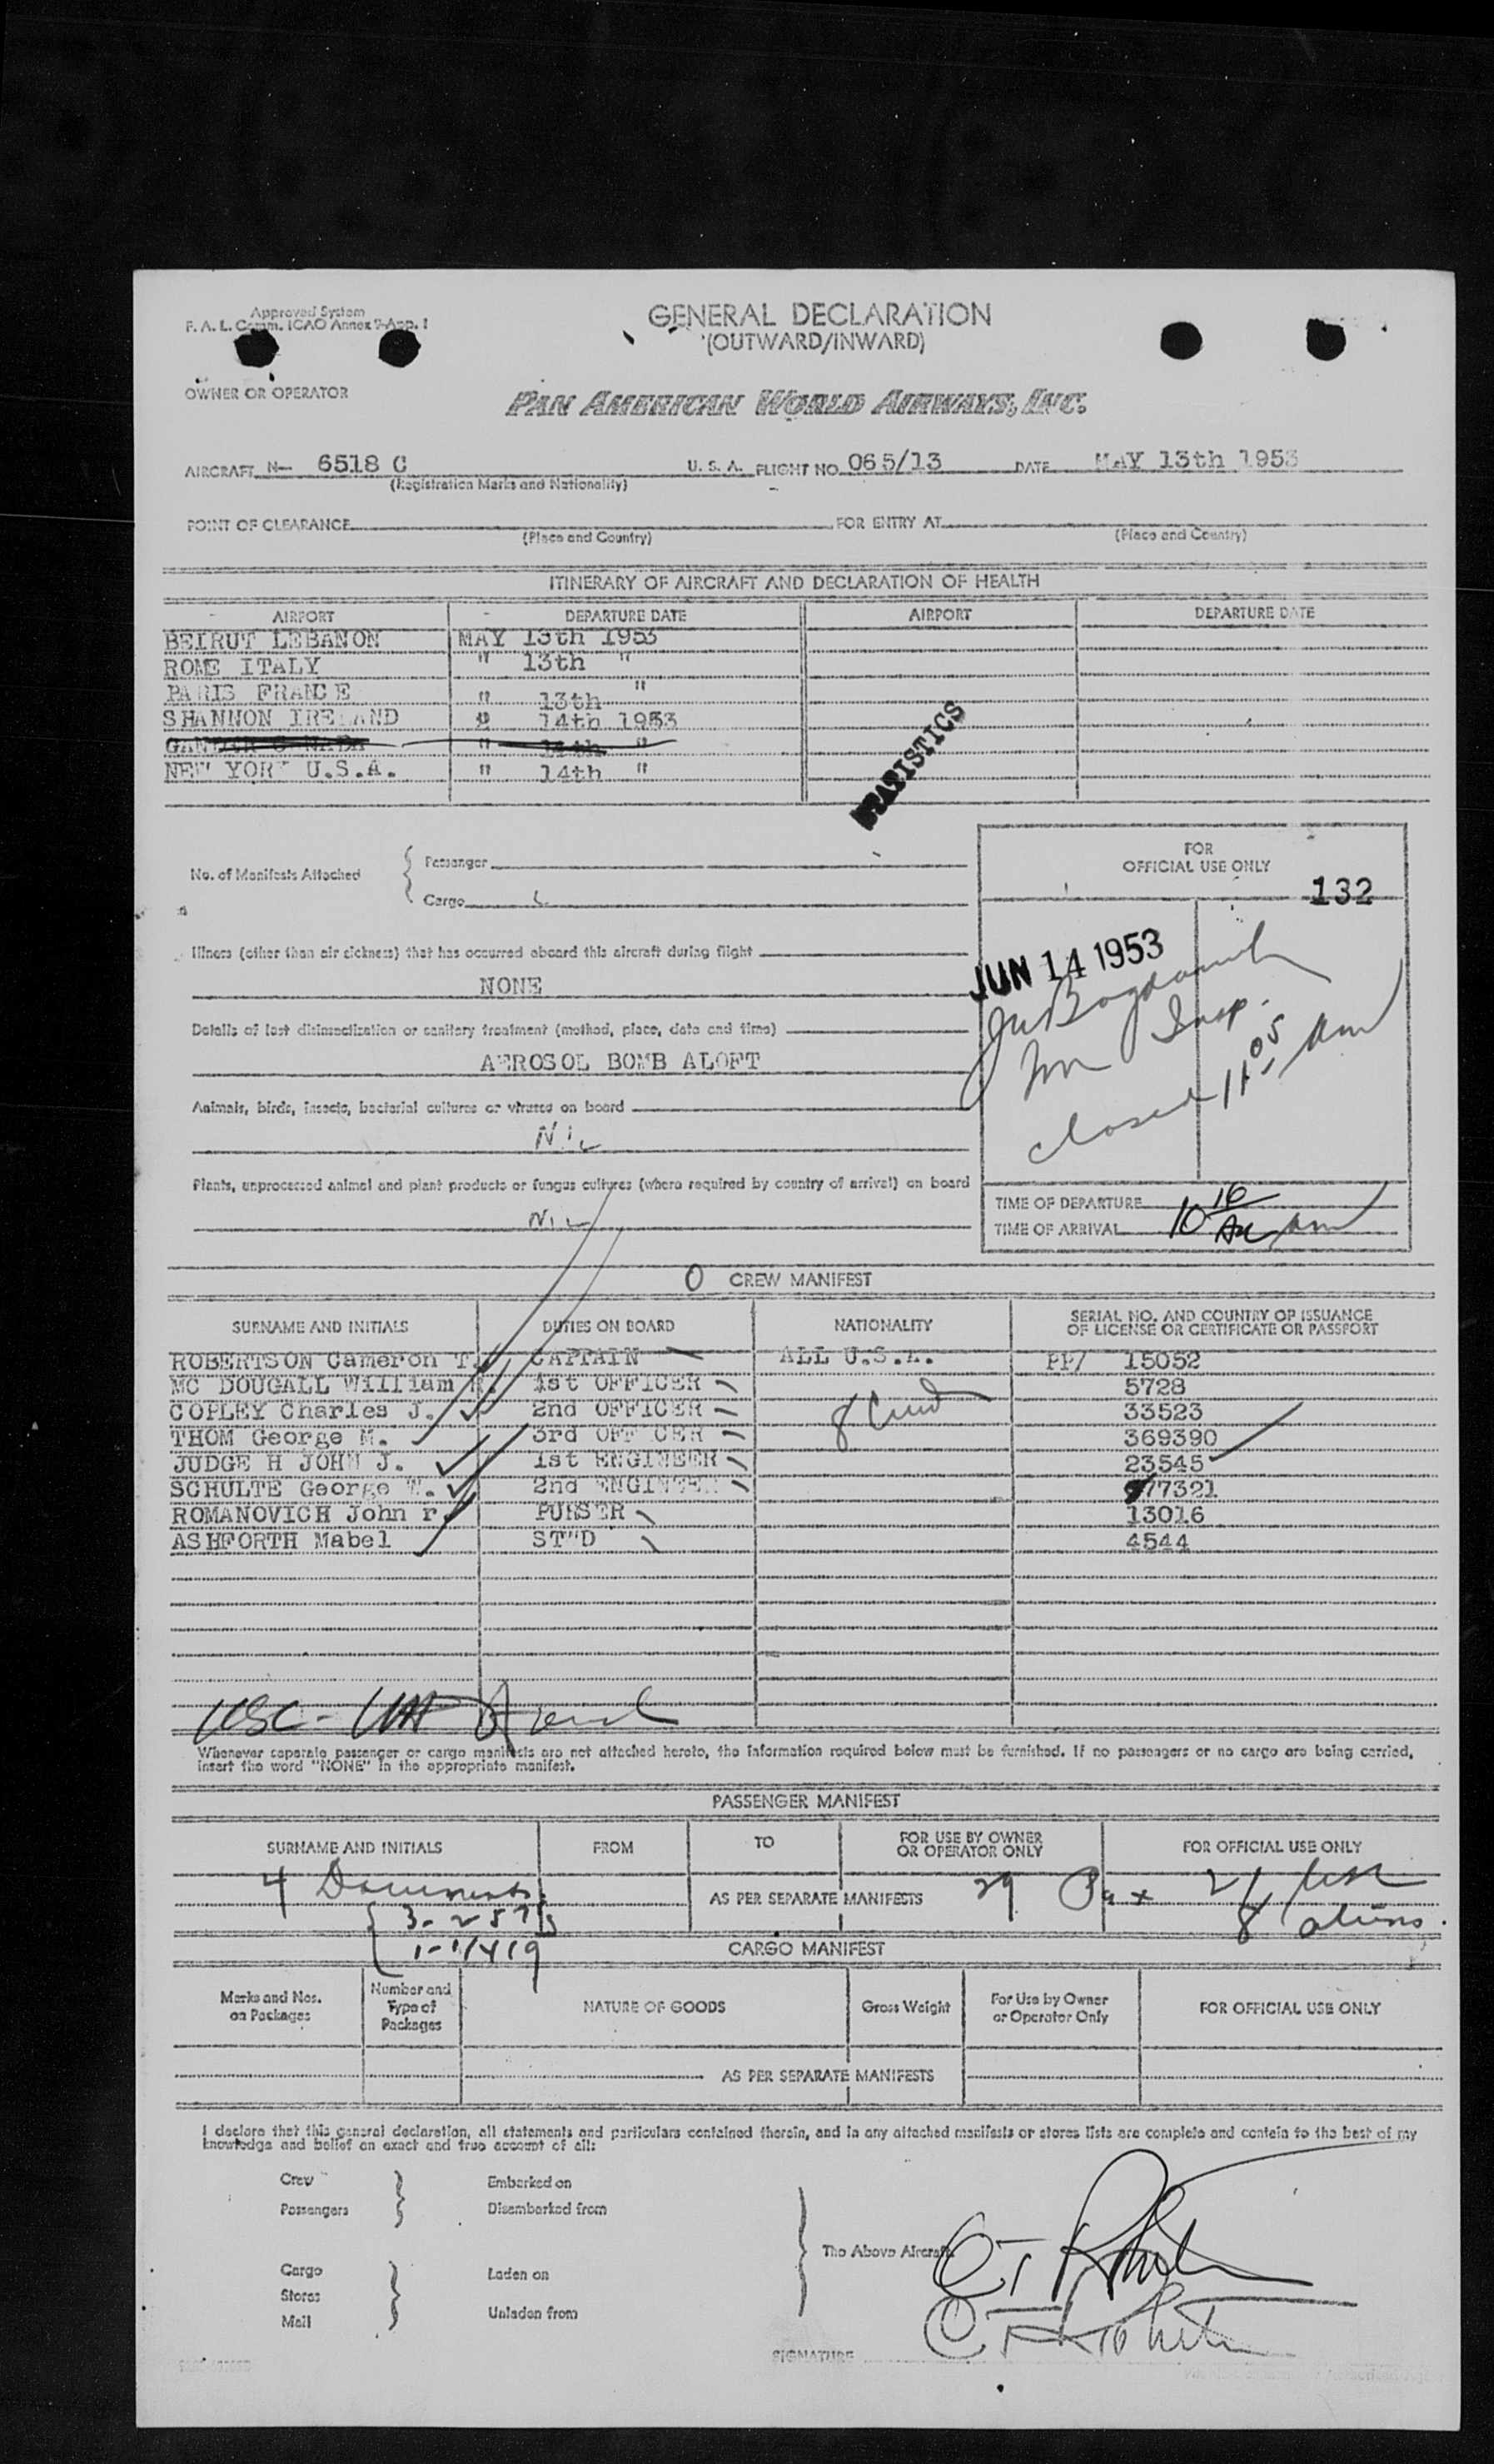 Approved System
F. A. L. Comm. ICAO Annex 9-App. 1
GENERAL DECLARATION
(OUTWARD/INWARD)
OWNER OR OPERATOR
PAN AMERICAN WORLD AIRWAYS, INC.
AIRCRAFT N- 6518 C U. S. A. FLIGHT NO. 065/13 DATE MAY 13th 1953
(Registration Marks and Nationality)
POINT OF CLEARANCE FOR ENTRY AT
(Place and Country) (Place and Country)
ITINERARY OF AIRCRAFT AND DECLARATION OF HEALTH
AIRPORT DEPARTURE DATE AIRPORT DEPARTURE DATE
BEIRUT LEBANON MAY 13th 1953
ROME ITALY " 13th "
PARIS FRANCE " 13th "
SHANNON IRELAND " 14th 1953
" 14th "
NEW YORK U.S.A. " 14th "
STATISTICS
No. of Manifests Attached
Passenger
Cargo
FOR
OFFICIAL USE ONLY
132
JUN 14 1953
Illness (other than air sickness) that has occurred aboard this aircraft during flight
NONE
Insp.
Details of last disinsectization or sanitary treatment (method, place, date and time)
AEROSOL BOMB ALOFT
closed 11 05 am
Animals, birds, insects, bacterial cultures or viruses on board
NIL
Plants, unprocessed animal and plant products or fungus cultures (where required by country of arrival) on board
NIL
TIME OF DEPARTURE
TIME OF ARRIVAL 10 16 am
O CREW MANIFEST
SURNAME AND INITIALS DUTIES ON BOARD NATIONALITY SERIAL NO. AND COUNTRY OF ISSUANCE
OF LICENSE OR CERTIFICATE OR PASSPORT
ROBERTSON Cameron T. CAPTAIN ALL U.S.A. PP/ 15052
MC DOUGALL William 1st OFFICER 5728
COPLEY Charles J. 2nd OFFICER 33523
THOM George M. 3rd OFF CER 369390
JUDGE H JOHN J. 1st ENGINEER 23545
SCHULTE George W. 2nd ENGINEER 77321
ROMANOVICH John r. PURSER 13016
ASHFORTH Mabel ST"D 4544
8 Crew
USC-
Whenever separate passenger or cargo manifests are not attached hereto, the information required below must be furnished. If no passengers or no cargo are being carried,
insert the word "NONE" in the appropriate manifest.
PASSENGER MANIFEST
SURNAME AND INITIALS FROM TO FOR USE BY OWNER
OR OPERATOR ONLY FOR OFFICIAL USE ONLY
4 Documents
AS PER SEPARATE MANIFESTS 29 Pax 21 USC
8 aliens.
CARGO MANIFEST
Marks and Nos.
on Packages
Number and
Type of
Packages
NATURE OF GOODS
Gross Weight
For Use by Owner
or Operator Only
FOR OFFICIAL USE ONLY
AS PER SEPARATE MANIFESTS
I declare that this general declaration, all statements and particulars contained therein, and in any attached manifests or stores lists are complete and contain to the best of my
knowledge and belief an exact and true account of all:
Crew
Passengers
Embarked on
Disembarked from
The Above Aircraft.
Cargo
Stores
Mail
Laden on
Unladen from
SIGNATURE